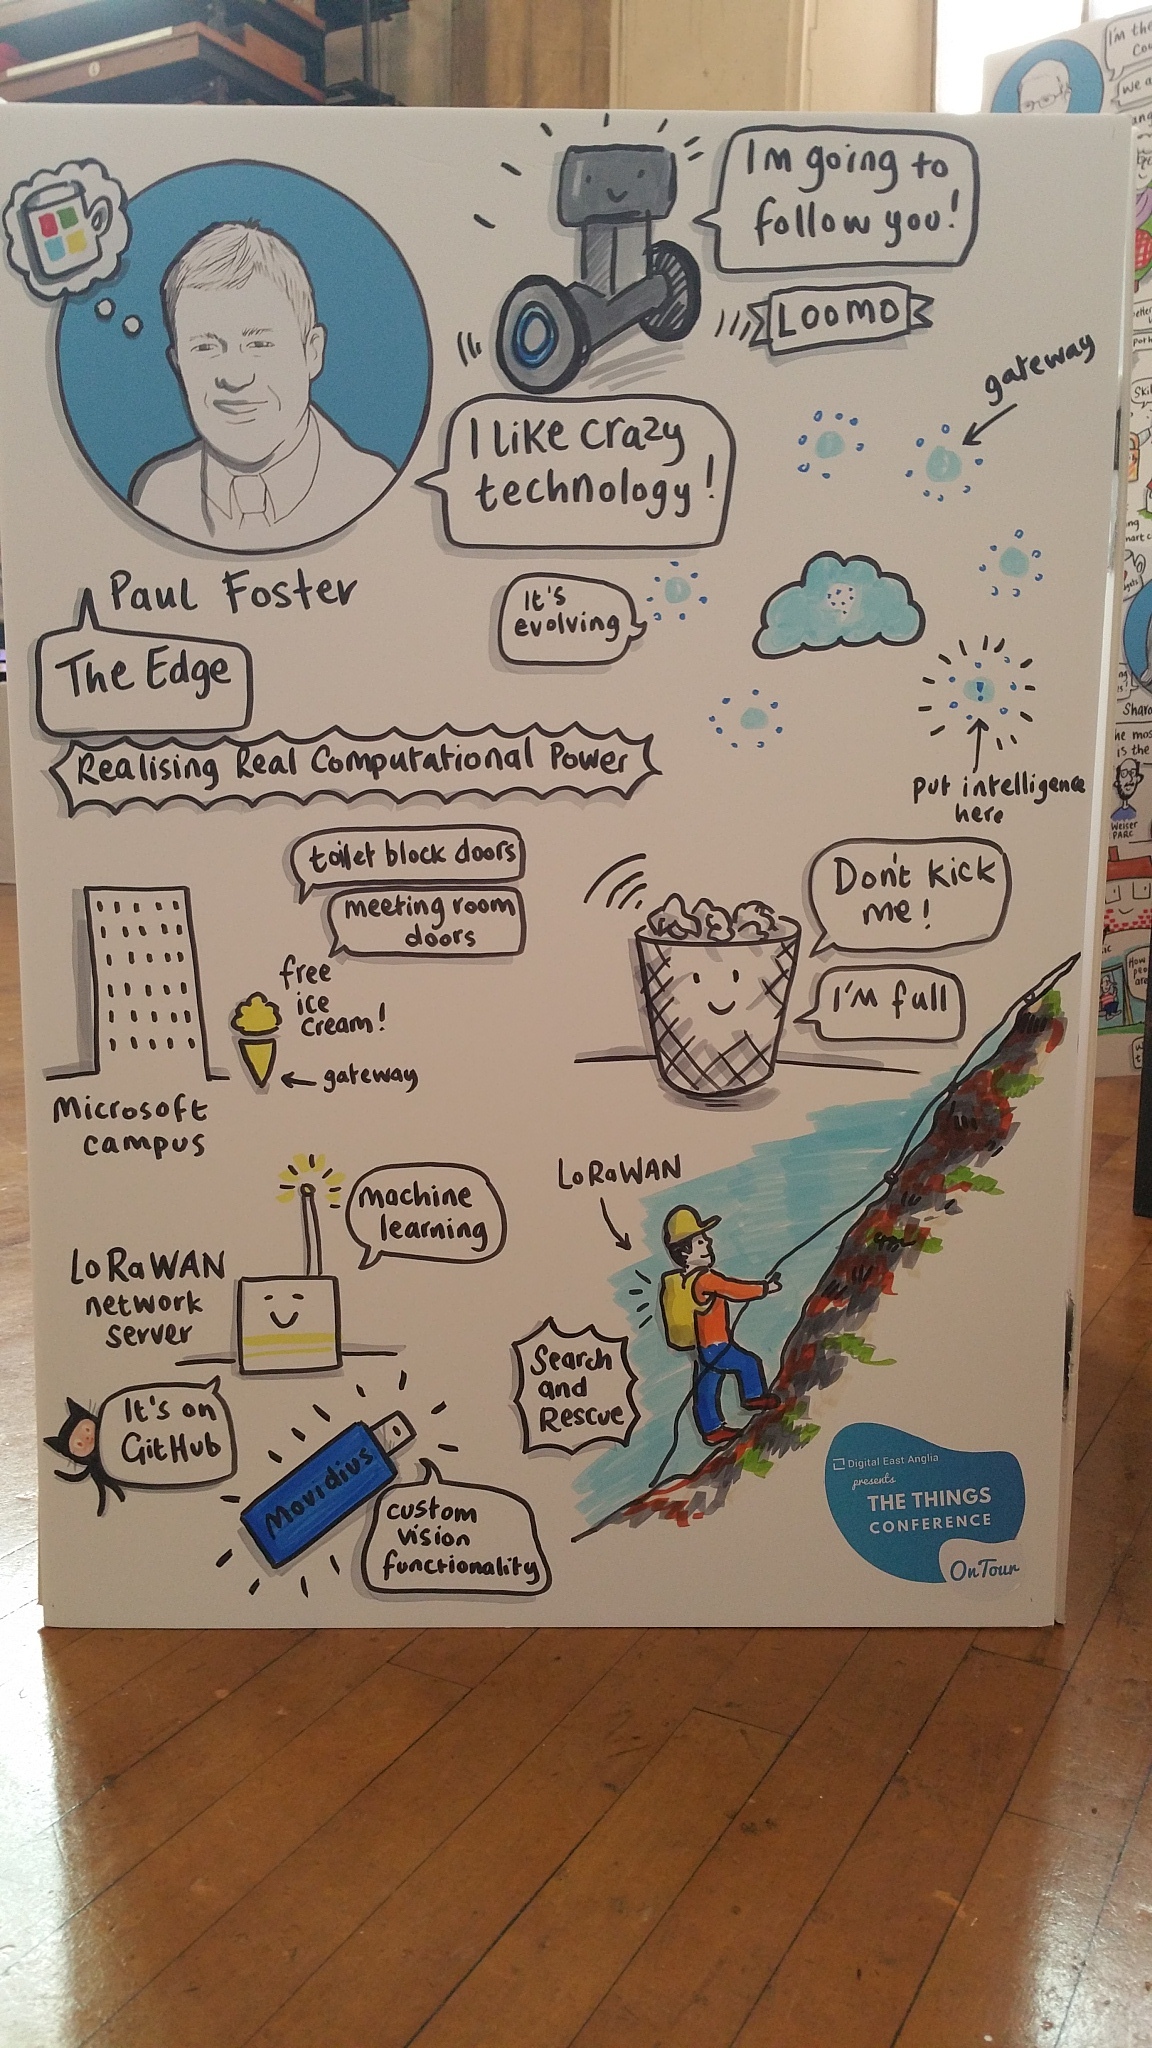 I'm going to
follow you!
LOOMO
gateway
I like crazy
technology!
Paul Foster
The Edge
It's
evolving
Realising Real Computational Power
put intelligence
here
toilet block doors
meeting room
doors
free
ice
cream!
gateway
Microsoft
campus
Don't kick
me!
I'm full
LoRaWAN
machine
learning
LoRaWAN
network
server
Search
and
Rescue
It's on
GitHub
Movidius
custom
vision
functionality
Digital East Anglia
presents
THE THINGS
CONFERENCE
On Tour
I'm the
we a
Weiser
PARC
is the